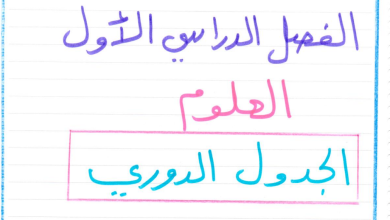 الفصل الدراسي الأول
العلوم
الجدول الدوري